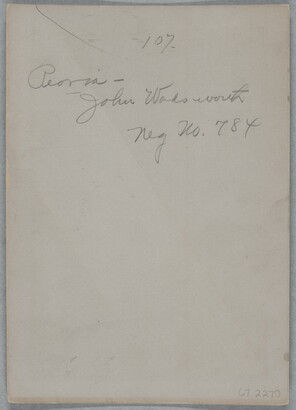 -107.
Peoria -
John Wadsworth
Neg No. 784
67.2270